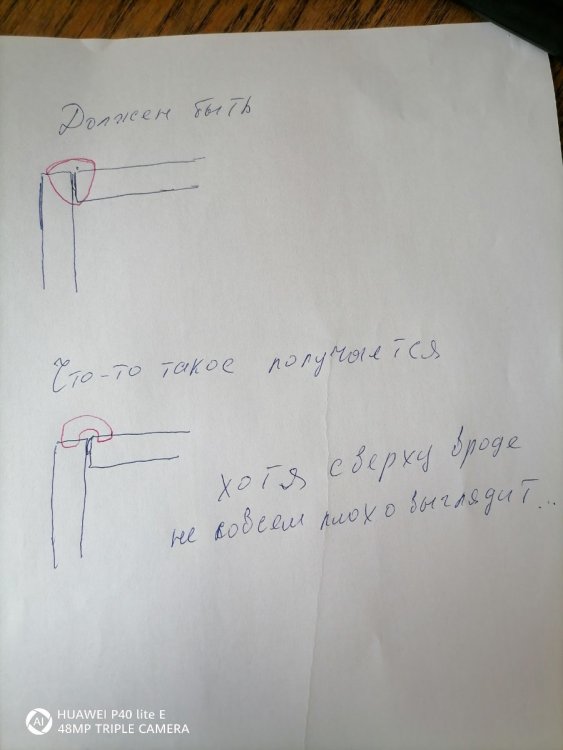 Должен быть
Что-то такое получается
хотя сверху вроде
не совсем плохо выглядит...
HUAWEI P40 lite E
48MP TRIPLE CAMERA
AI